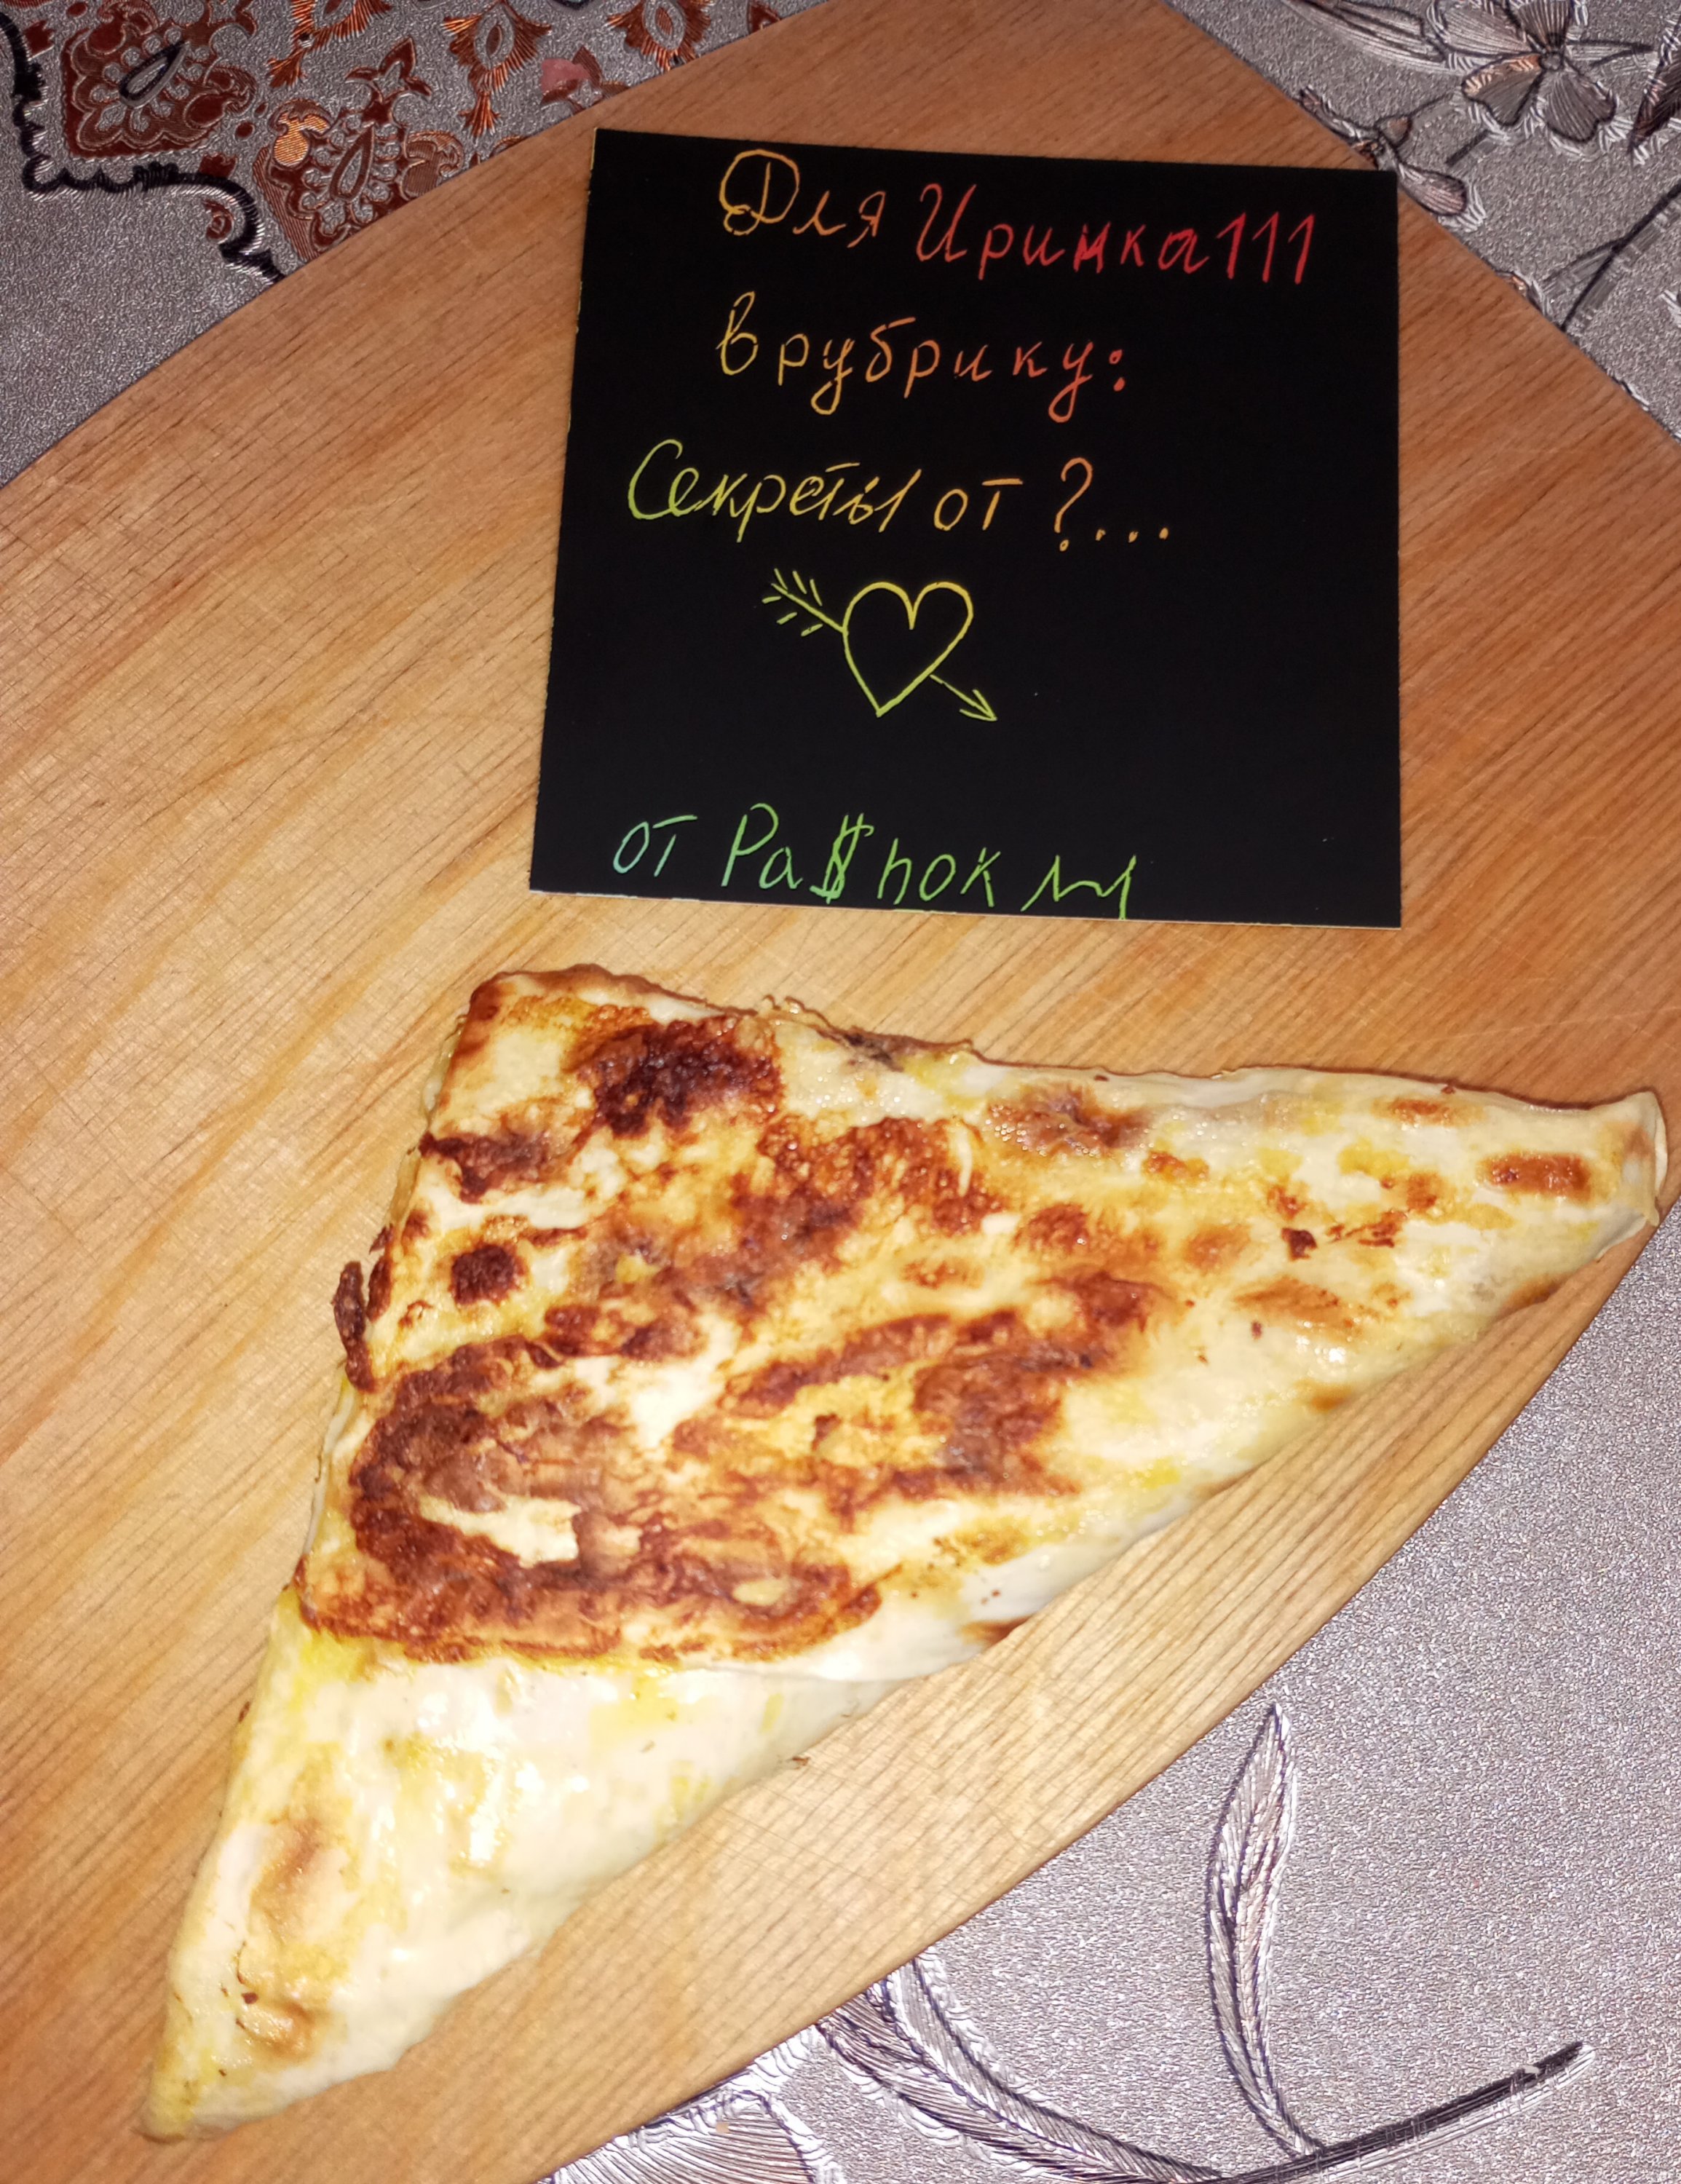 Для Иринка111
в рубрику:
Секреты от ?...
от Pa$hok